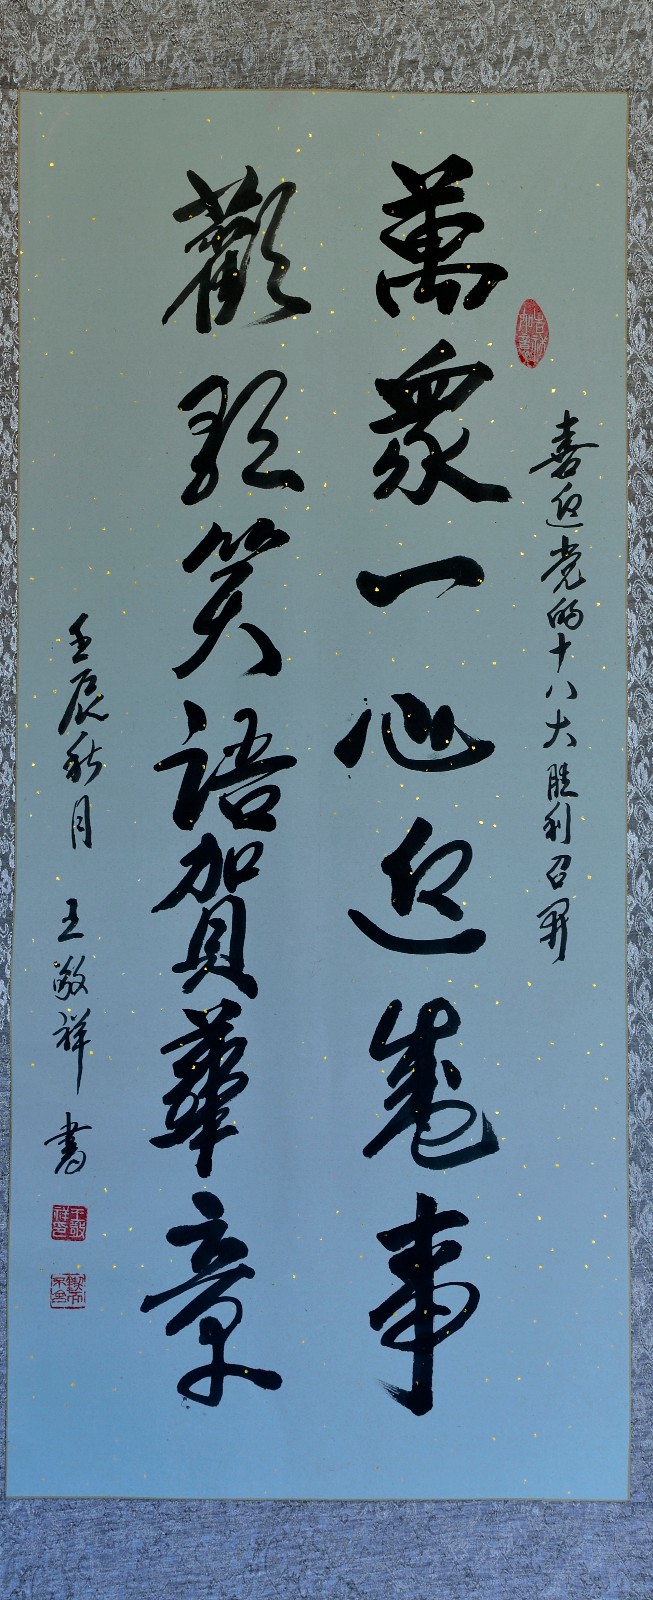 喜迎党的十八大胜利召開
萬衆一心迎盛事
歡歌笑語賀華章
壬辰秋月 王敬祥 書
王敬祥印